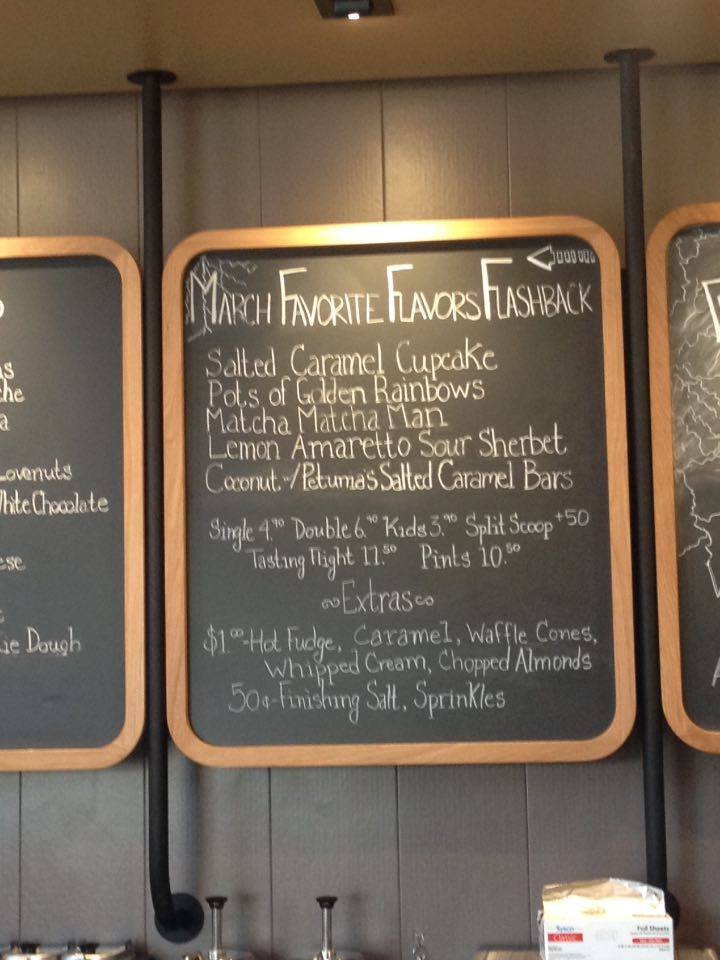 March Favorite Flavors Flashback
Salted Caramel Cupcake
Pots of Golden Rainbows
Matcha Matcha Man
Lemon Amaretto Sour Sherbet
Coconut /Petunia's Salted Caramel Bars
Single 4.90 Double 6.90 Kids 3.90 Split Scoop +50
Tasting Flight 11.50 Pints 10.50
Extras
$1.00-Hot Fudge, Caramel, Waffle Cones,
Whipped Cream, Chopped Almonds
50¢-Finishing Salt, Sprinkles
Lovenuts
White Chocolate
Dough
Sysco
Classic
Foil Sheets